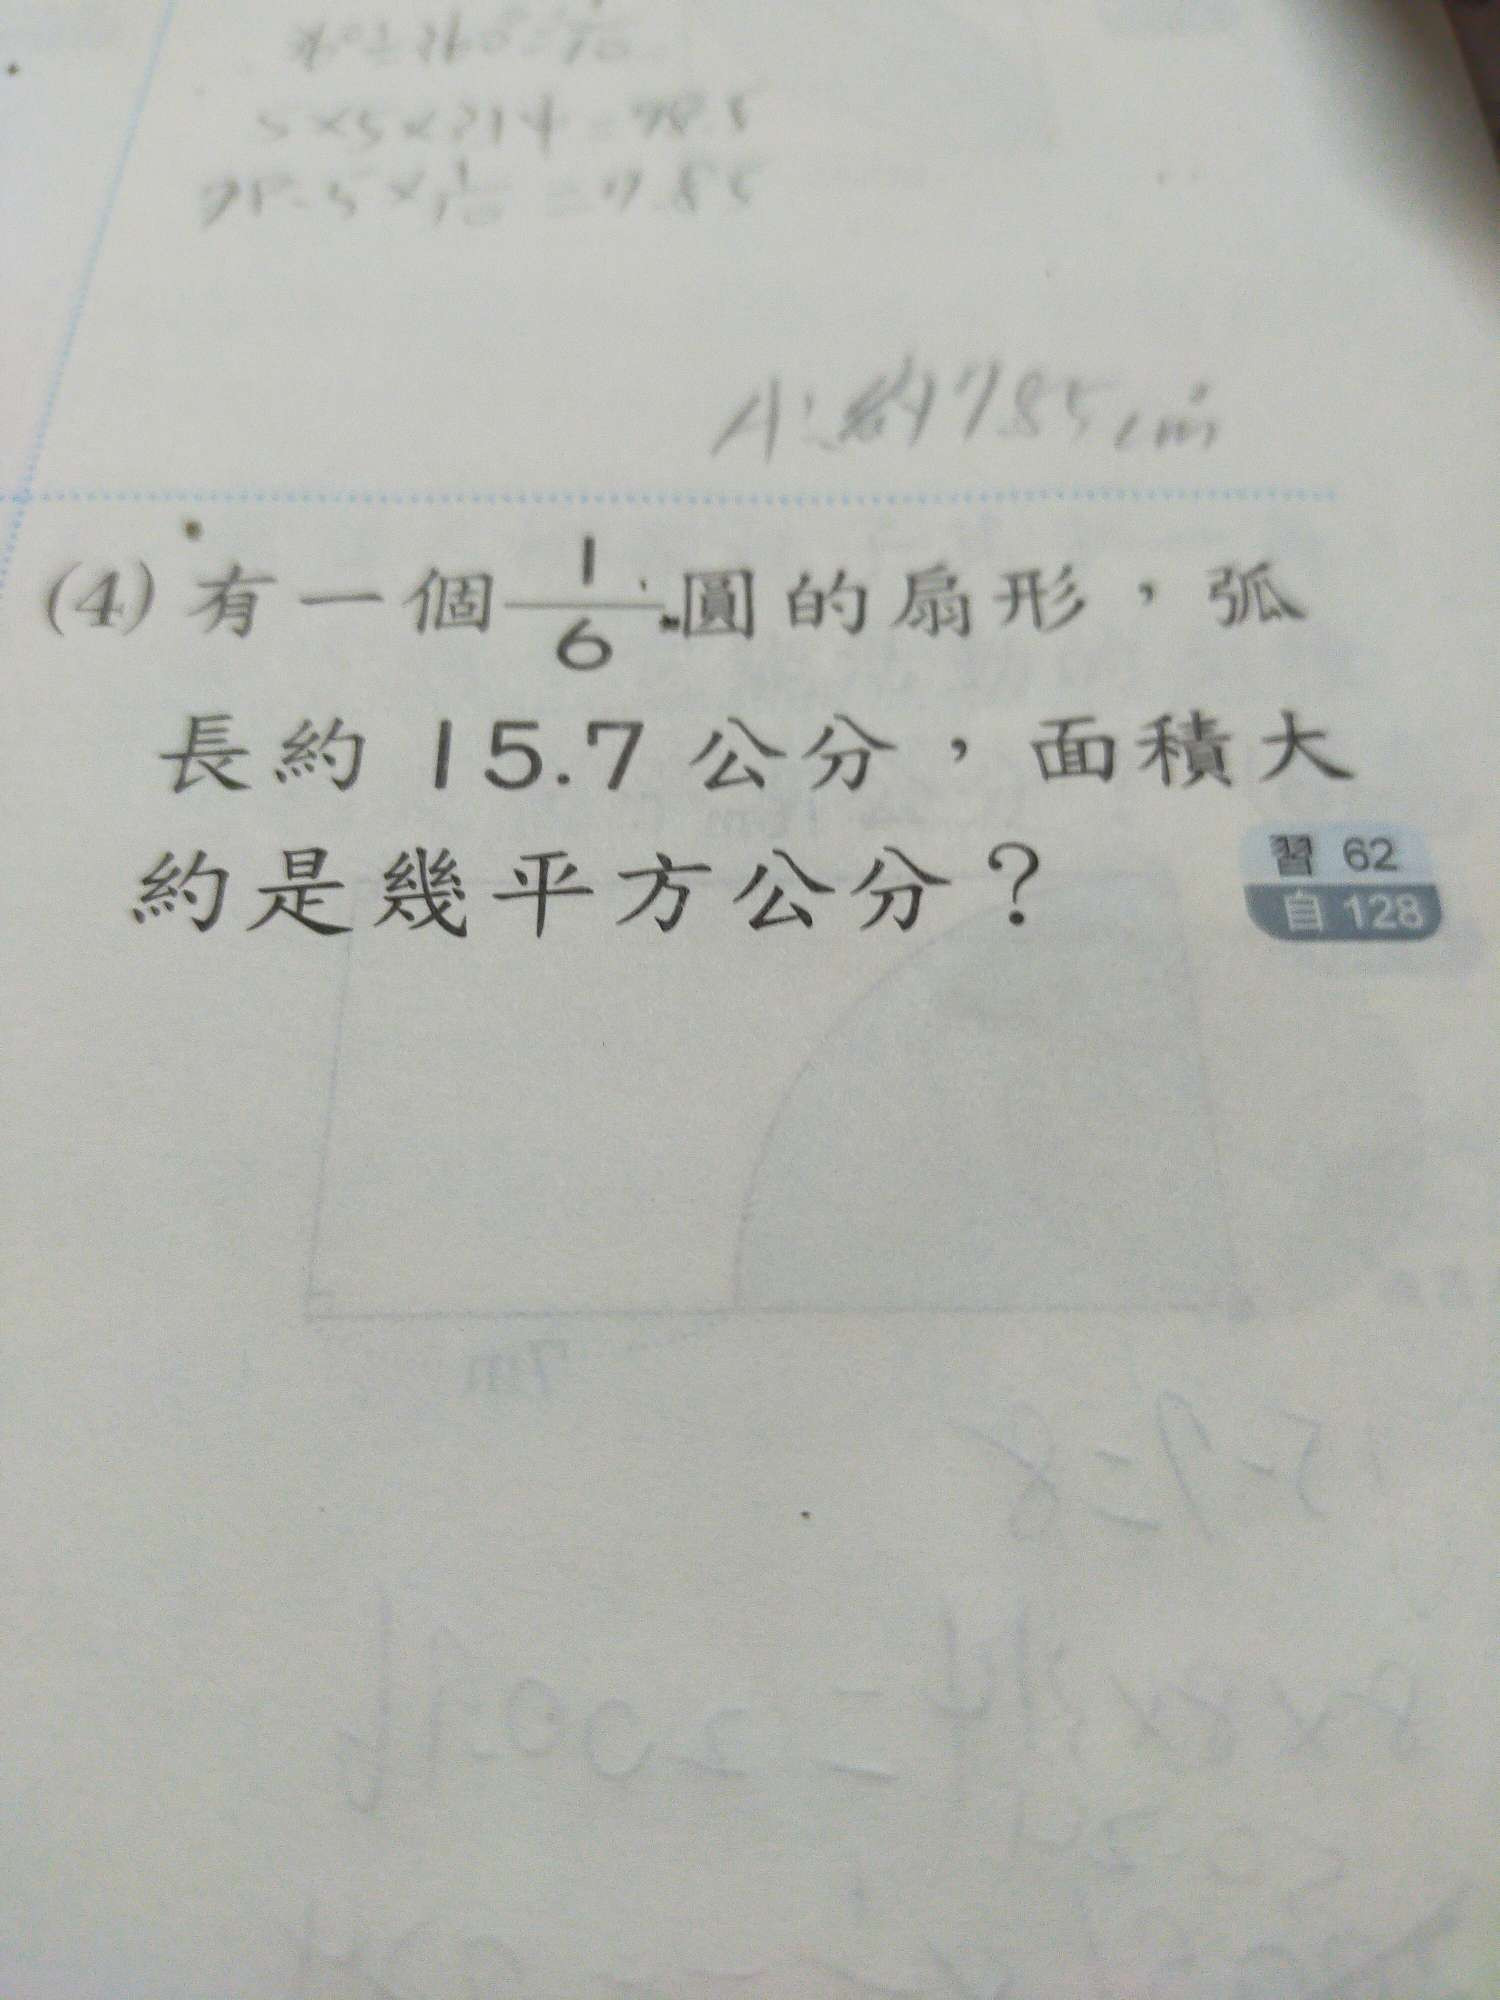 5×5×3.14=78.5
78.5×1/10=7.85
A:約7.85cm²
(4) 有一個1/6圓的扇形，弧
長約 15.7 公分，面積大
約是幾平方公分？
習 62
自 128